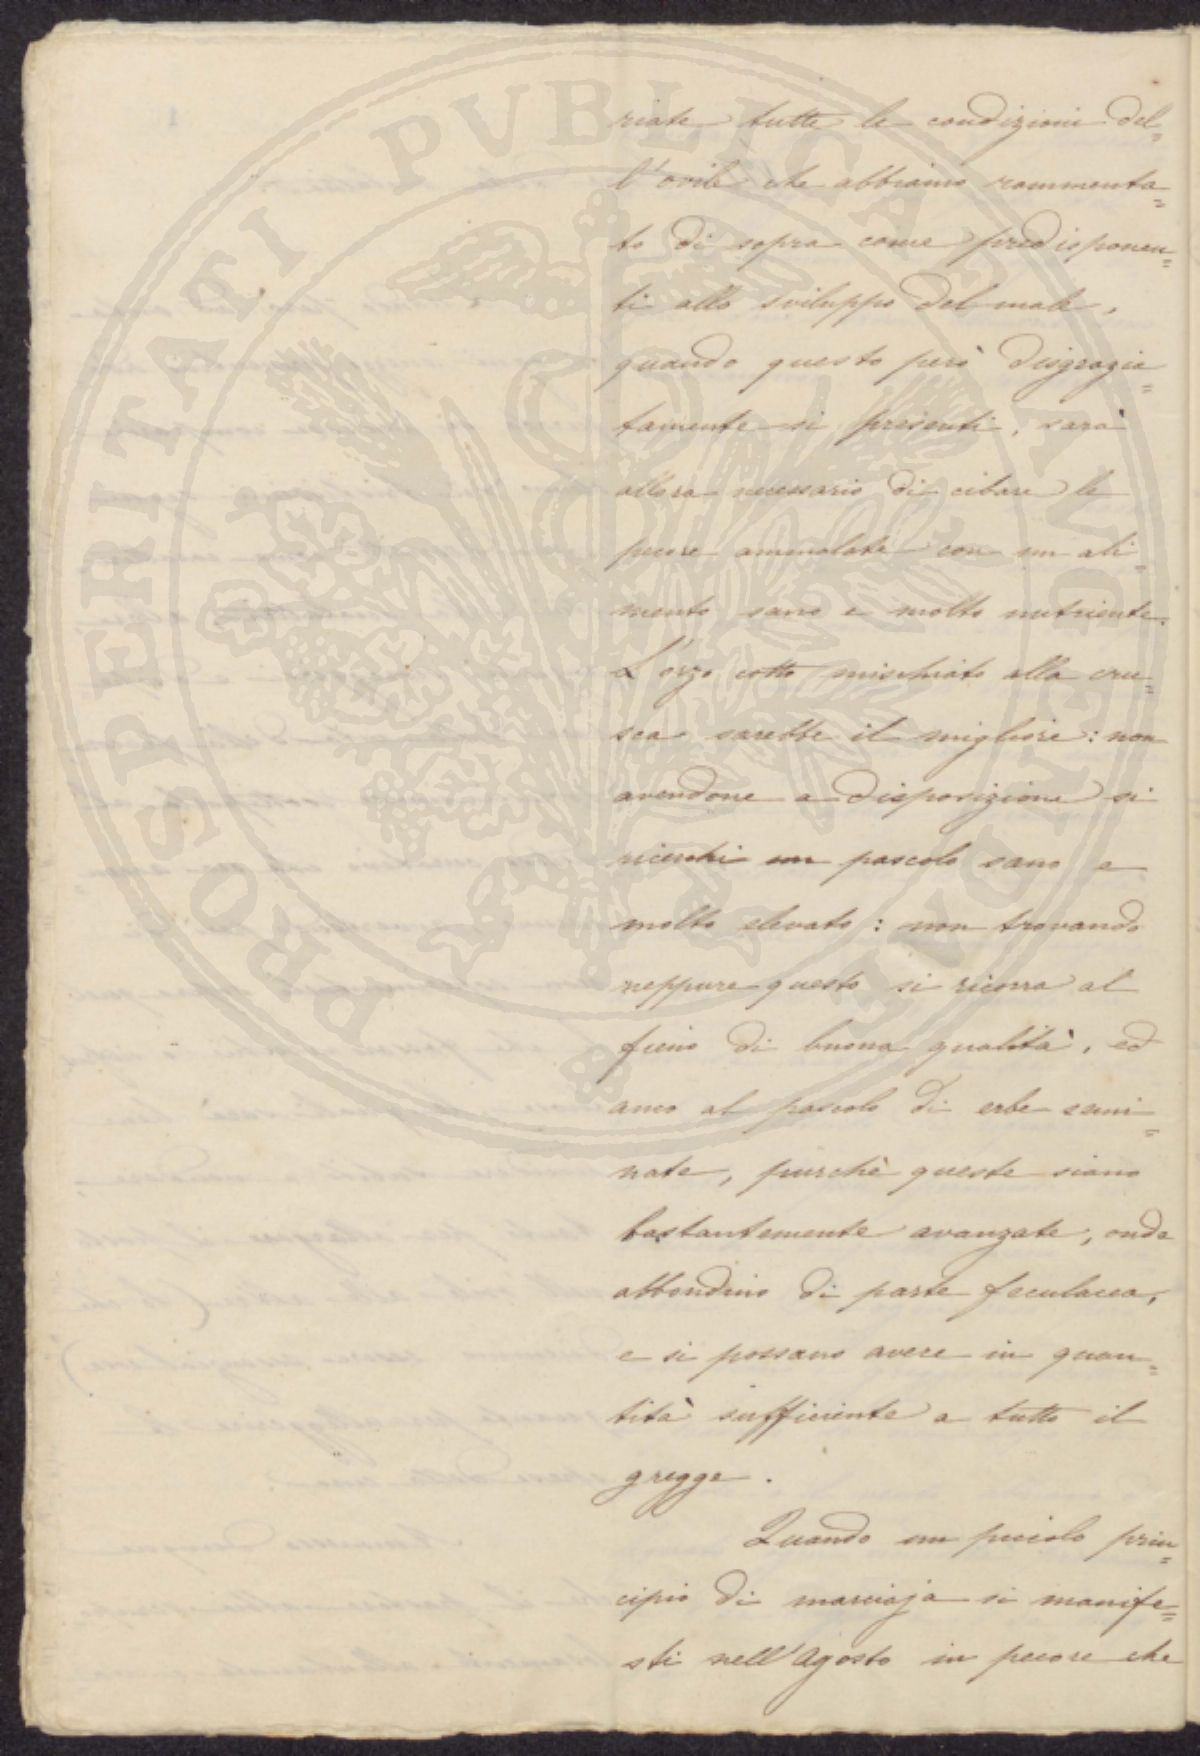 riate tutte le condizioni del=
l'ovile che abbiamo rammenta=
to di sopra come predisponen=
ti allo sviluppo del male,
quando questo però disgrazia=
tamente si presenti, sarà
allora necessario di cibare le
pecore ammalate con un ali=
mento sano e molto nutriente.
L'orzo cotto mischiato alla cru=
sca sarebbe il migliore: non
avendone a disposizione si
ricerchi un pascolo sano e
molto elevato: non trovando
neppure questo si ricorra al
fieno di buona qualità, ed
anco al pascolo di erbe semi=
nate, purchè queste siano
bastantemente avanzate, onde
abbondino di parte feculacea,
e si possano avere in quan=
tità sufficiente a tutto il
gregge.
Quando un piccolo prin=
cipio di marciaja si manife=
sti nell'Agosto in pecore che
PROSPERITATI PVBLICAE AVGENDAE